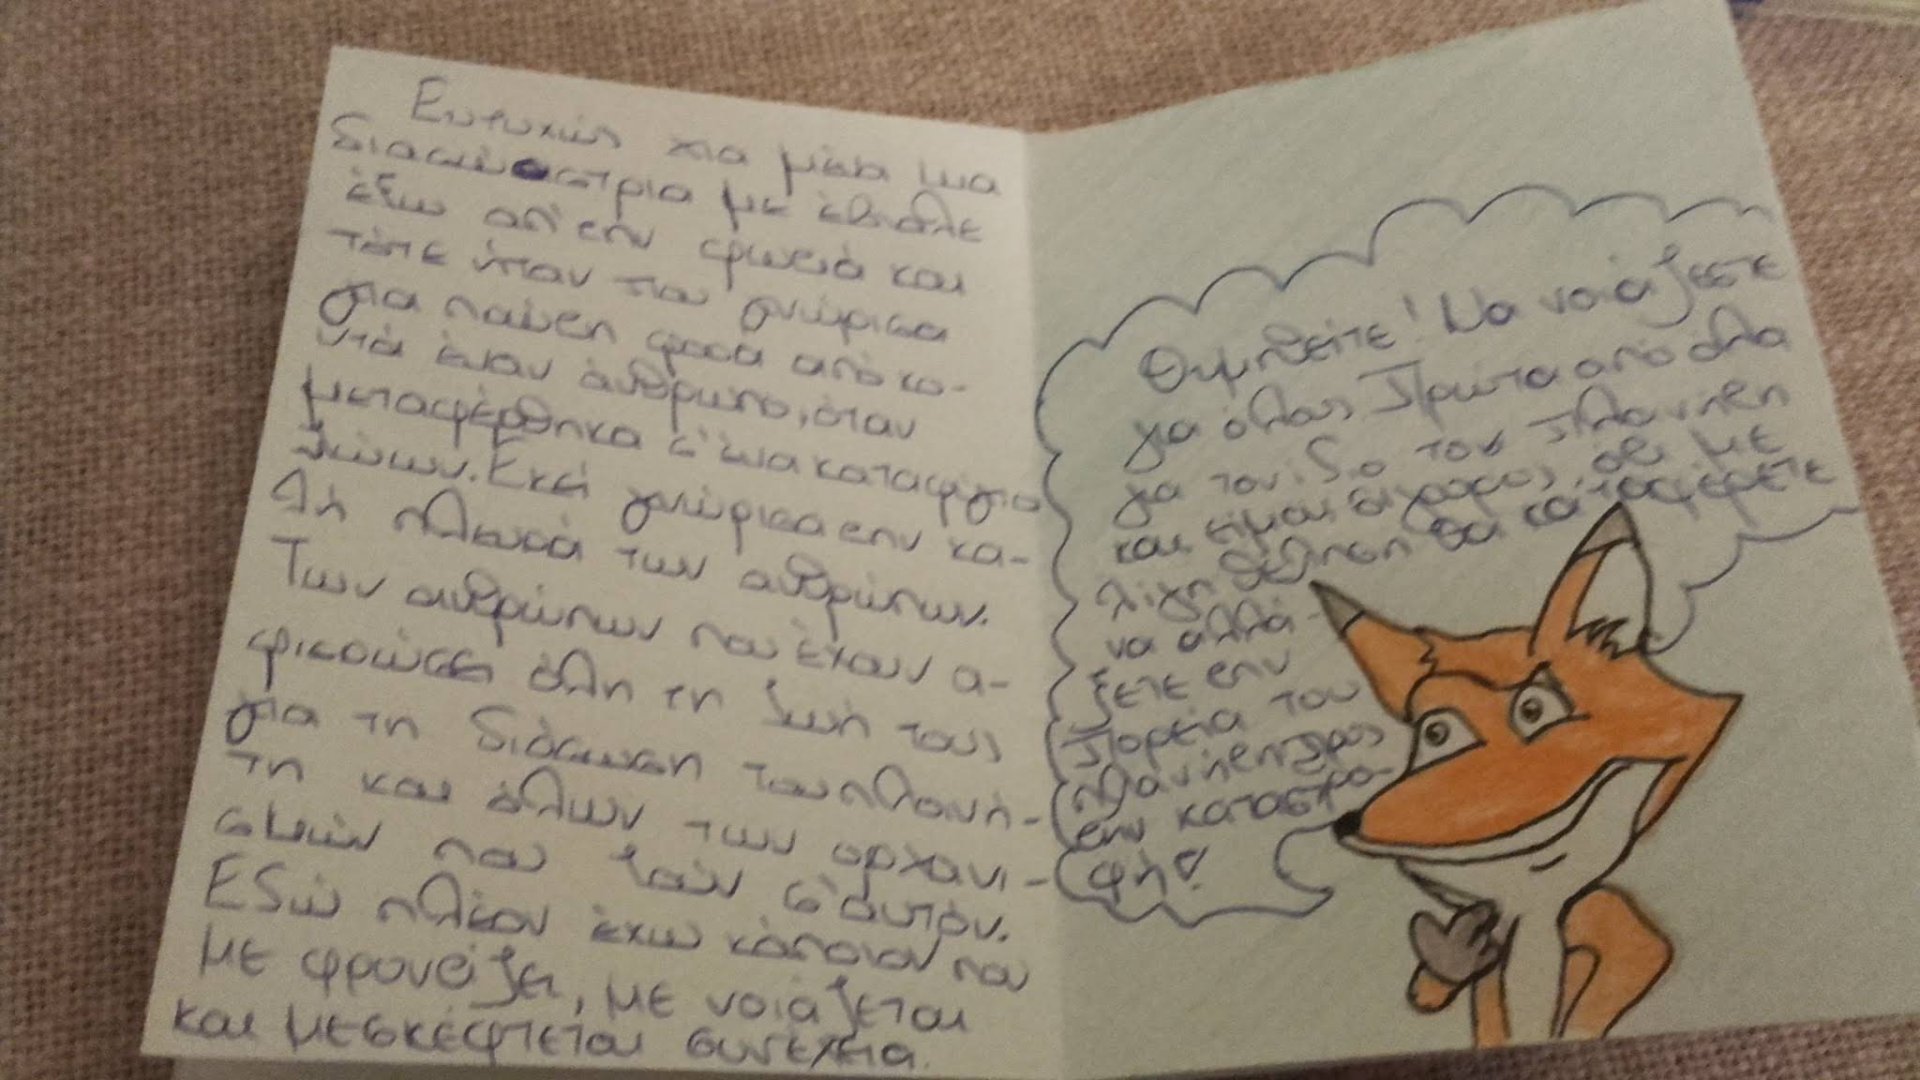 Ευτυχώς για μένα μια
διασώστρια με έβγαλε
έξω απ'την φωτιά και
τότε ήταν που γνώρισα
για πρώτη φορά από κο-
ντά έναν άνθρωπο, όταν
μεταφέρθηκα σ'ένα καταφύγιο
ζώων. Εκεί γνώρισα την κα-
λή πλευρά των ανθρώπων.
Των ανθρώπων που έχουν α-
φιερώσει όλη τη ζωή τους
για τη διάσωση του πλανή-
τη και όλων των οργανι-
σμών που ζουν σ'αυτόν.
Εδώ πλέον έχω κάποιον που
με φροντίζει, με νοιάζεται
και με σκέφτεται συνέχεια.
Θυμηθείτε! Να νοιάζεστε
για όλους πρώτα από όλα
για τον ίδιο τον πλανήτη
και είμαι σίγουρος, ότι με
λίγη θέληση θα καταφέρετε
να αλλά-
ξετε την
πορεία του
πλανήτη προς
την καταστρο-
φή!